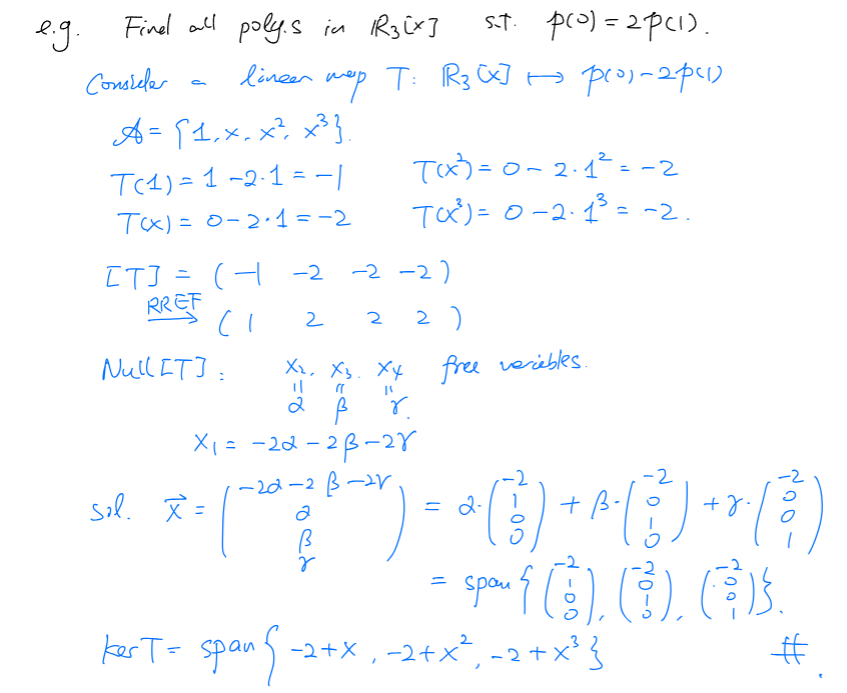 e.g. Find all polys in ℝ₃[x] s.t. p(0) = 2p(1).
Consider a linear map T: ℝ₃[x] ↦ p(0) - 2p(1)
A = {1, x, x², x³}.
T(1) = 1 - 2·1 = -1 T(x²) = 0 - 2·1² = -2
T(x) = 0 - 2·1 = -2 T(x³) = 0 - 2·1³ = -2.
[T] = (-1 -2 -2 -2)
RREF → (1 2 2 2)
Null[T]: x₂, x₃, x₄ free variables.
= = =
α β γ.
x₁ = -2α - 2β - 2γ
sol. x⃗ = (-2α-2β-2γ, α, β, γ) = α·(-2 1 0 0) + β·(-2 0 1 0) + γ·(-2 0 0 1)
= span{(-2 1 0 0), (-2 0 1 0), (-2 0 0 1)}.
ker T = span{-2+x, -2+x², -2+x³} #.